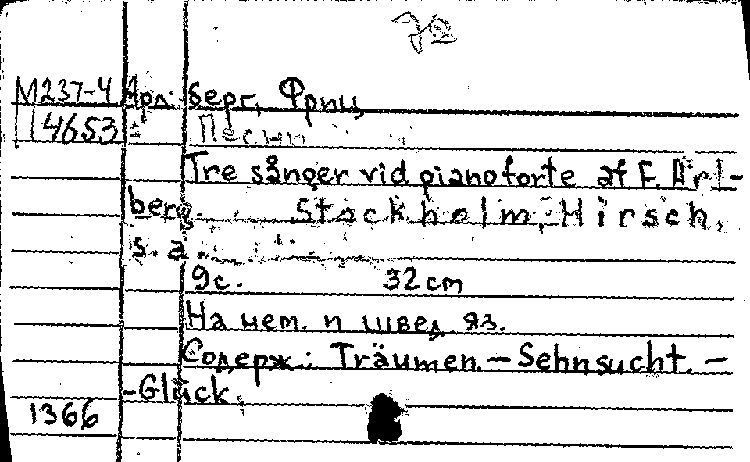 72
М237-4 Арл- берг, Фриц
14653 Песни
Tre sånger vid pianoforte af F. Arl-
berg. Stockholm, Hirsch,
s. a.
9с. 32 cm
На нем. и швед. яз.
Содерж.: Träumen. - Sehnsucht. -
- Glück.
1366